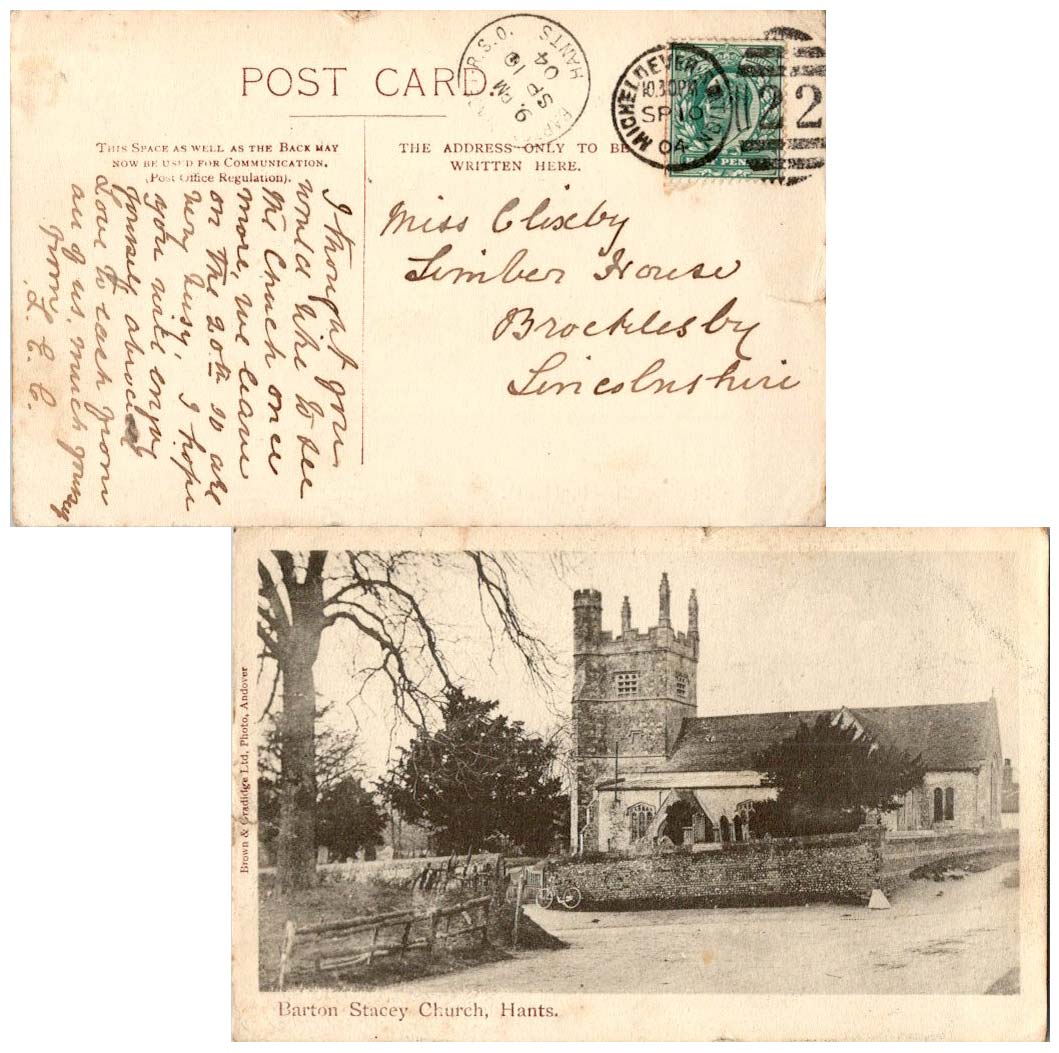 POST CARD.
THIS SPACE AS WELL AS THE BACK MAY
NOW BE USED FOR COMMUNICATION.
(Post Office Regulation).
THE ADDRESS ONLY TO BE
WRITTEN HERE.
R.S.O.
HANTS
9 PM
SP 10
04
MICHELDEVER STATION
10.30PM
SP 10
04
22
HALF PENNY
Miss Clixby
Limber House
Brocklesby
Lincolnshire
I thought you
would like to see
the Church once
more, we leave
on the 20th so are
very busy, I hope
you will enjoy
yourself abroad
Love to each from
all of us, much
from
L. C. C.
Brown & Gradidge Ltd, Photo, Andover
Barton Stacey Church, Hants.